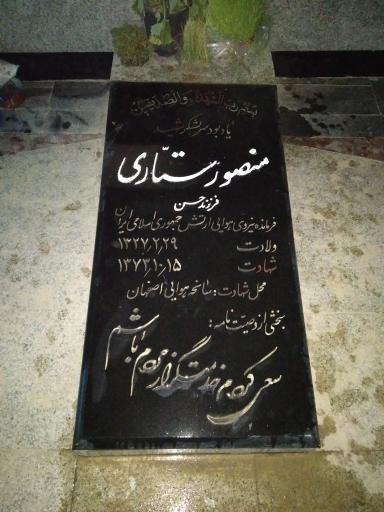 بسم رب الشهداء والصدیقین
یادبود سرلشکر شهید
منصور ستّاری
فرزند حسن
فرمانده نیروی هوایی ارتش جمهوری اسلامی ایران
ولادت ۱۳۲۷٫۲٫۲۹
شهادت ۱۳۷۳٫۱۰٫۱۵
محل شهادت: سانحه هوایی اصفهان
بخشی از وصیّت نامه:
سعی کردم خدمتگزار مردم باشم